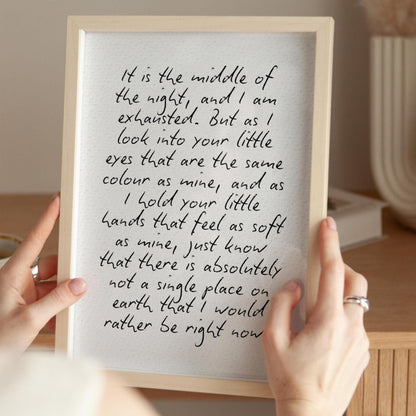 It is the middle of
the night, and I am
exhausted. But as I
look into your little
eyes that are the same
colour as mine, and as
I hold your little
hands that feel as soft
as mine, just know
that there is absolutely
not a single place on
earth that I would
rather be right now